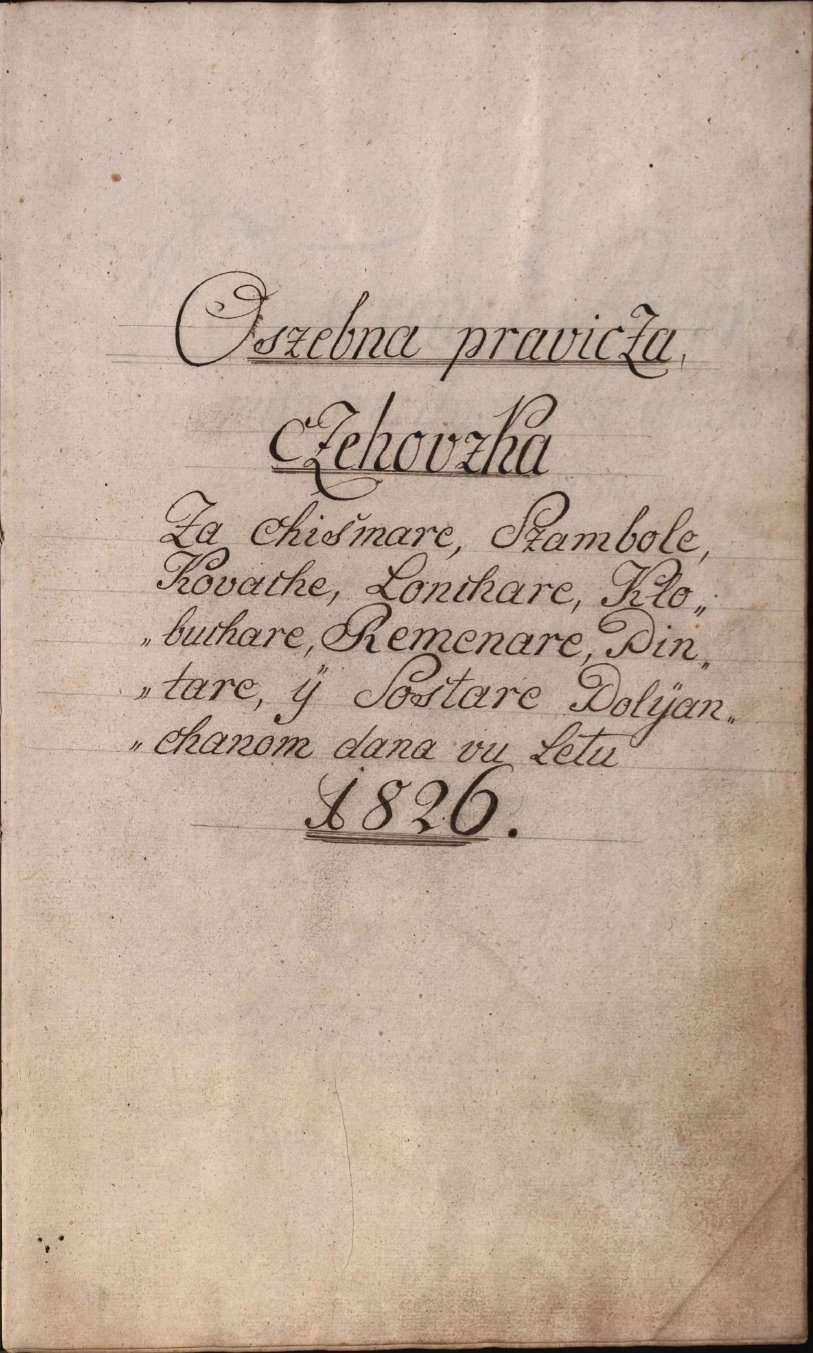 Oszebna pravicza,
czehovzka
Za chišmare, Szambole,
Kovache, Lonchare, Klo„
„buchare, Remenare, Pin„
„tare, ÿ Poštare Dolÿan„
„chanom dana vu Letu
1826.